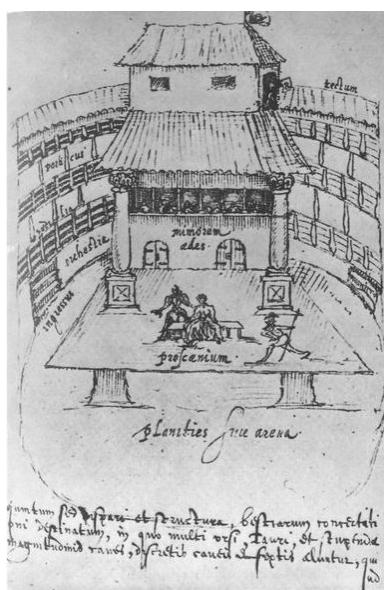 tectum
porticus
sedilia
orchestra
ingressus
mimorum
ædes
proscænium
planities sive arena
et structura, bestiarum concertati
oni destinatum, in quo multi ursi, Tauri, et stupendæ
magnitudinis canes, discretis caveis et septis aluntur, qui
ad